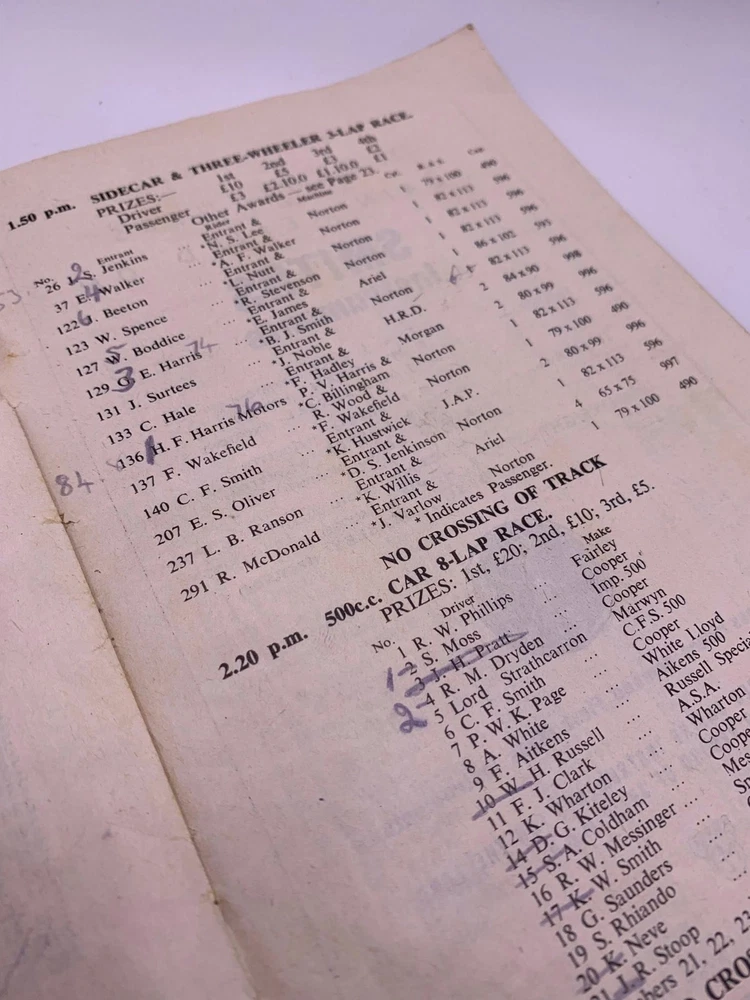 1.50 p.m. SIDECAR & THREE-WHEELER 3-LAP RACE.
PRIZES:— 1st 2nd 3rd 4th
Driver £10 £5 £3 £2
Passenger £3 £2.10.0 £1.10.0 £1
Other Awards — see Page 23.
No. Entrant Rider Machine Cyl. B. & S. Cap.
26 J. S. Jenkins ... Entrant & *N. S. Lee Norton 1 79 x 100 490
37 E. Walker ... Entrant & *A. F. Walker Norton 1 82 x 113 596
122 J. Beeton ... Entrant & *L. Nutt Norton 1 82 x 113 596
123 W. Spence ... Entrant & *R. Stevenson Norton 1 82 x 113 596
127 W. Boddice ... Entrant & *E. James
129 G. E. Harris ... Entrant & *B. J. Smith
131 J. Surtees ... Entrant & *J. Noble
133 C. Hale ... Entrant & *F. Hadley
136 H. F. Harris Motors ... P. V. Harris & *C. Billingham
137 F. Wakefield ... R. Wood & *F. Wakefield
140 C. F. Smith ... Entrant & *K. Hustwick
207 E. S. Oliver ... Entrant & *D. S. Jenkinson Norton
237 L. B. Ranson ... Entrant & *K. Willis Ariel 4 65 x 75 997
291 R. McDonald ... Entrant & *J. Varlow Norton 1 79 x 100 490
* Indicates Passenger.
NO CROSSING OF TRACK
2.20 p.m. 500c.c. CAR 8-LAP RACE.
PRIZES: 1st, £20; 2nd, £10; 3rd, £5.
No. Driver Make
1 R. W. Phillips ... Fairley
2 S. Moss ... Cooper
3 J. H. Pratt ... Imp. 500
4 R. M. Dryden ... Cooper
5 Lord Strathcarron Marwyn
6 C. F. Smith ... C.F.S. 500
7 P. W. K. Page ... Cooper
8 A. White ... White Lloyd
9 F. Aitkens ... Aikens 500
10 W. H. Russell ... Russell Specia
11 F. J. Clark ... A.S.A.
12 K. Wharton ... Wharton
14 D. G. Kiteley ... Cooper
15 S. A. Coldham ... Cooper
16 R. W. Messinger ... Mes
17 K. W. Smith ...
18 G. Saunders ...
19 S. Rhiando ...
20 K. Neve
21 J. R. Stoop
bers 21, 22, 23
CRO